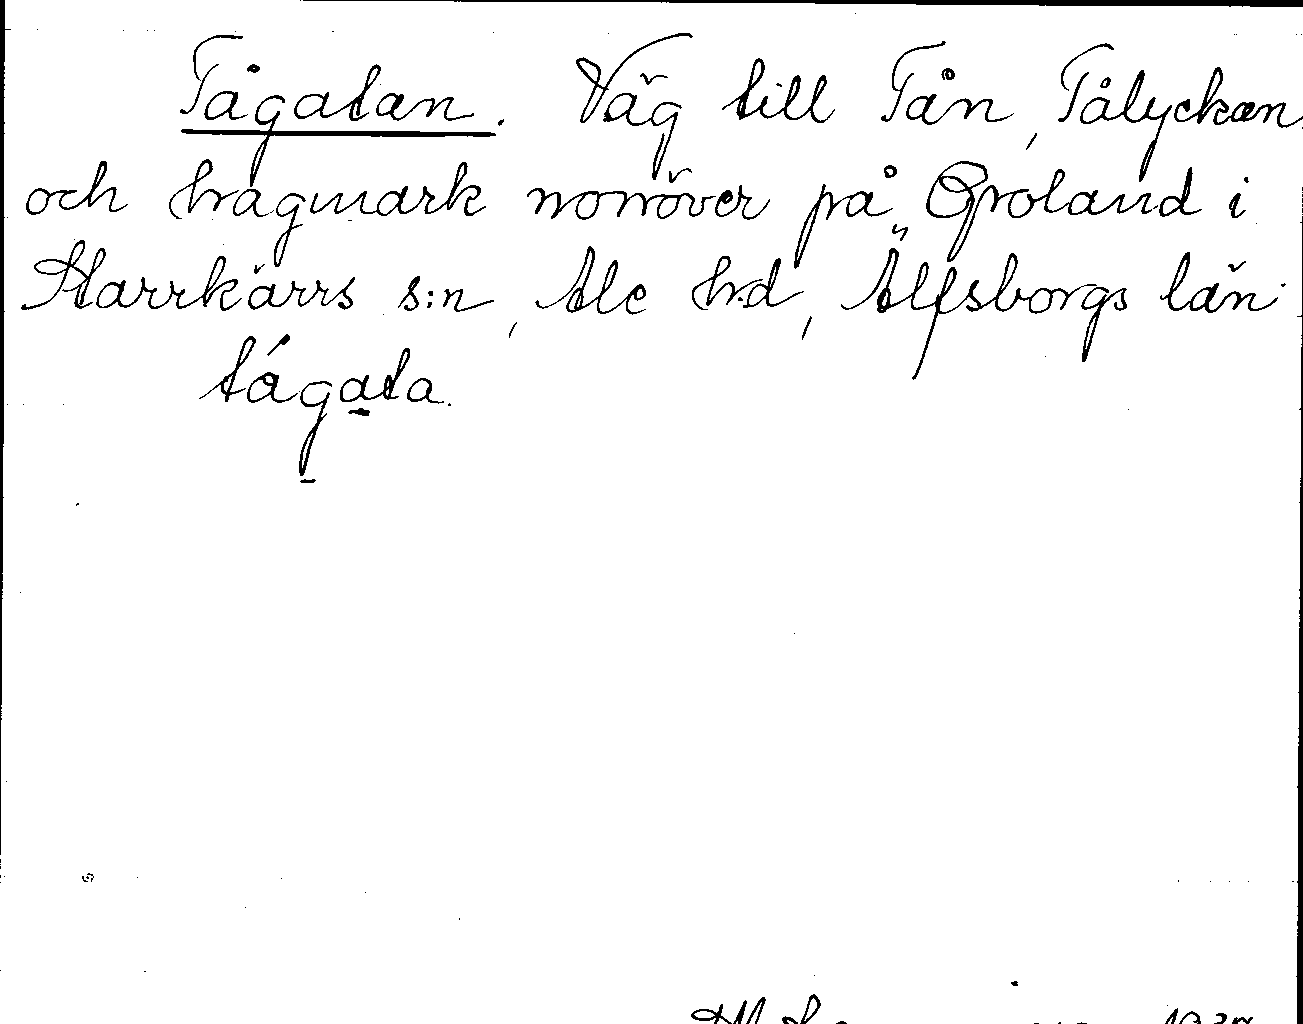 Tågatan. Väg till Tån, Tålyckan
och hagmark norröver på Groland i
Starrkärrs s:n, Ale h:d, Älfsborgs län.
tágata.